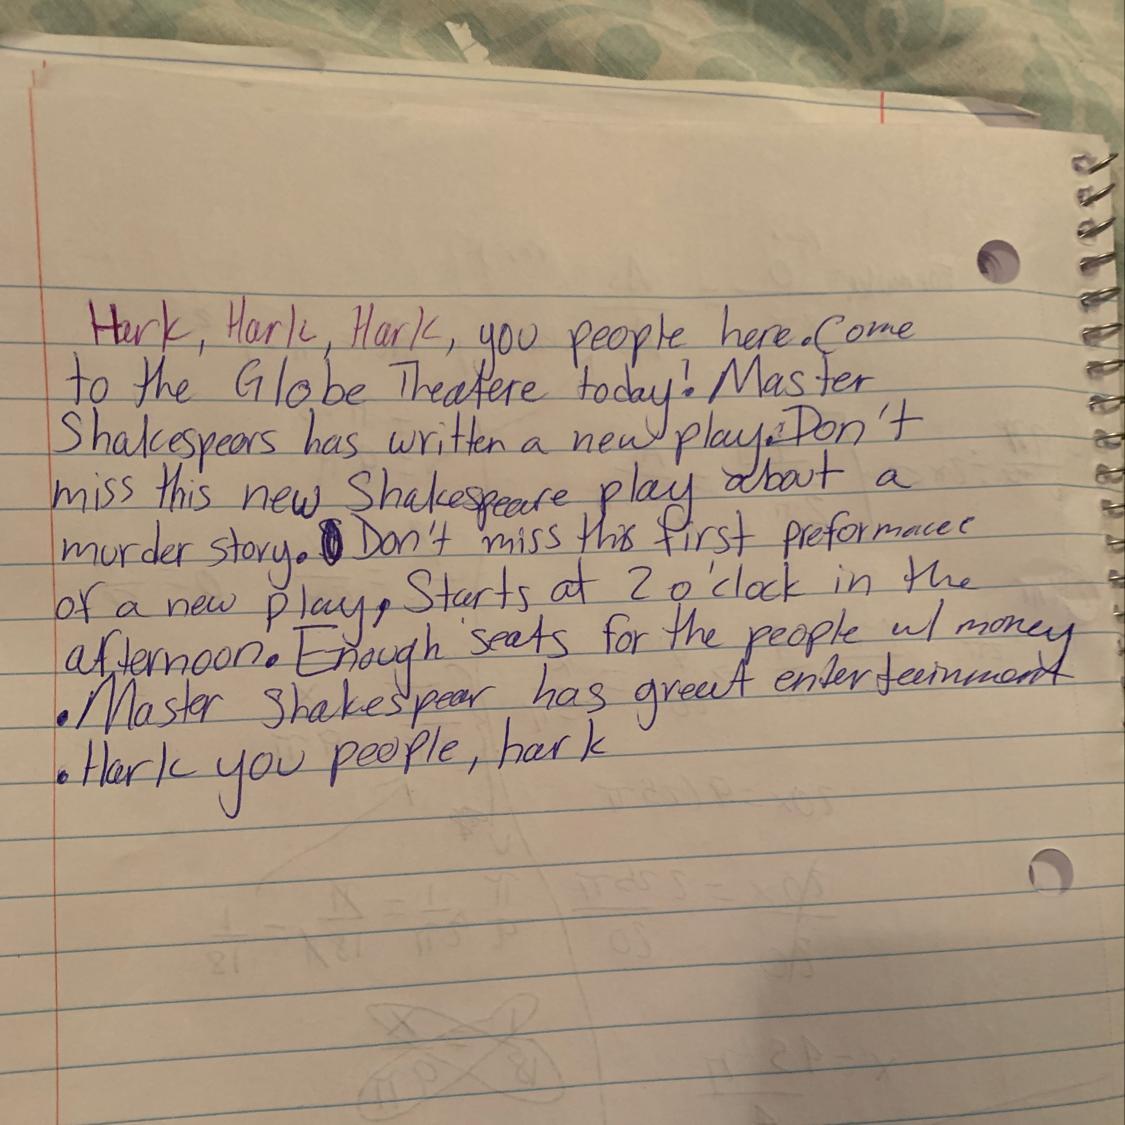 Hark, Hark, Hark, you people here. Come
to the Globe Theatere today! Master
Shakespears has written a new play. Don't
miss this new Shakespeare play about a
murder story. Don't miss this first preformacee
of a new play, Starts at 2 o'clock in the
afternoon. Enough seats for the people w/ money
. Master Shakespear has great enterteinment
. Hark you people, hark